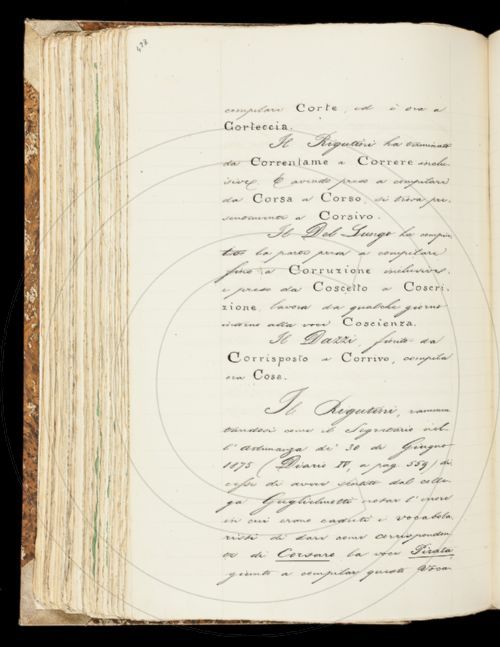 428
compilare Corte, ed è ora a
Corteccia.
Il Rigutini ha terminato
da Correntame a Correre inclu-
sive. E avendo preso a compilare
da Corsa a Corso, si trova pre-
sentemente a Corsivo.
Il Del Lungo ha compiu-
to la parte presa a compilare
fino a Corruzione inclusive,
e preso da Coscetto a Coscri-
zione, lavora da qualche giorno
intorno alla voce Coscienza.
Il Dazzi, finito da
Corrisposto a Corrivo, compila
ora Cose.
Il Rigutini, rammen-
tandosi come il Segretario nel-
l'adunanza de' 30 di Giugno
1875 (Diario IV, a pag. 559) di-
cesse di aver sentito dal colle-
ga Guglielmotti notar l'errore
in cui erano caduti i vocabola-
risti di dare come corrisponden-
te di Corsaro la voce Pirata
giunto a compilar questo Voca-